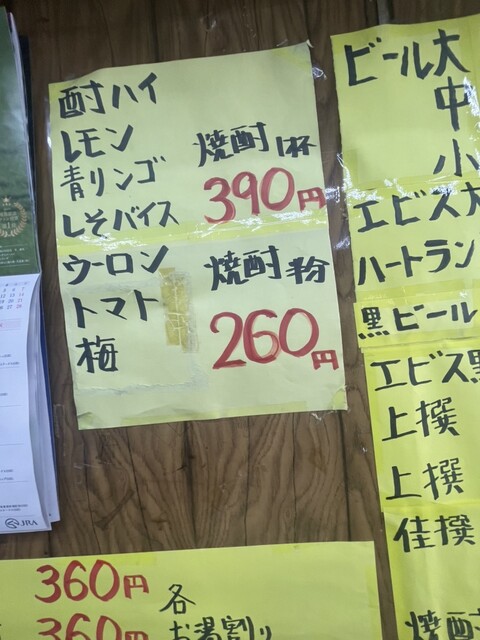 酎ハイ
レモン
青リンゴ
しそバイス
ウーロン
トマト
梅
焼酎1杯
390円
焼酎粉
260円
ビール大
中
小
エビス大
ハートラン
黒ビール
エビス黒
上撰
上撰
佳撰
焼酎
360円
各
360円
お湯割り
JRA